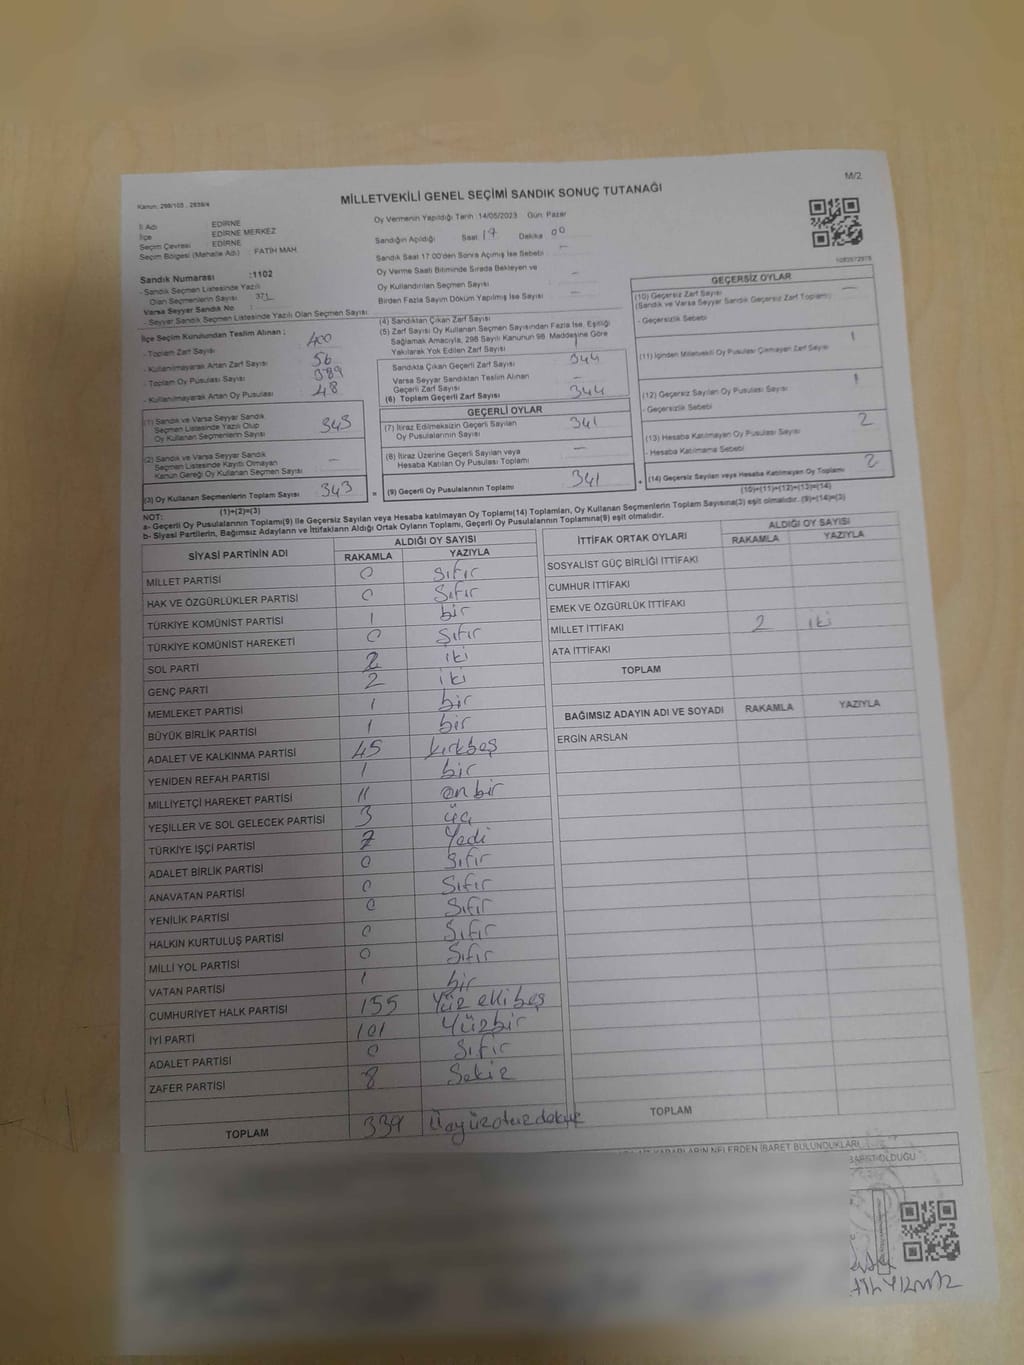 M/2
MİLLETVEKİLİ GENEL SEÇİMİ SANDIK SONUÇ TUTANAĞI
Kanun: 298/105 , 2839/4
İl Adı : EDİRNE
İlçe : EDİRNE MERKEZ
Seçim Çevresi : EDİRNE
Seçim Bölgesi (Mahalle Adı) : FATİH MAH.
Oy Vermenin Yapıldığı Tarih :14/05/2023 Gün: Pazar
Sandığın Açıldığı Saat: 17 Dakika 00
Sandık Saat 17:00'den Sonra Açılmış İse Sebebi : —
Oy Verme Saati Bitiminde Sırada Bekleyen ve
Oy Kullandırılan Seçmen Sayısı —
Birden Fazla Sayım Döküm Yapılmış İse Sayısı —
Sandık Numarası :1102
- Sandık Seçmen Listesinde Yazılı
Olan Seçmenlerin Sayısı 371
Varsa Seyyar Sandık No :
- Seyyar Sandık Seçmen Listesinde Yazılı Olan Seçmen Sayısı:
İlçe Seçim Kurulundan Teslim Alınan ;
- Toplam Zarf Sayısı : 400
- Kullanılmayarak Artan Zarf Sayısı : 56
- Toplam Oy Pusulası Sayısı : 389
- Kullanılmayarak Artan Oy Pusulası : 48
(1) Sandık ve Varsa Seyyar Sandık
Seçmen Listesinde Yazılı Olup
Oy Kullanan Seçmenlerin Sayısı 343
(2) Sandık ve Varsa Seyyar Sandık
Seçmen Listesinde Kayıtlı Olmayan
Kanun Gereği Oy Kullanan Seçmen Sayısı —
(3) Oy Kullanan Seçmenlerin Toplam Sayısı 343
(1)+(2)=(3)
(4) Sandıktan Çıkan Zarf Sayısı
(5) Zarf Sayısı Oy Kullanan Seçmen Sayısından Fazla İse, Eşitliği
Sağlamak Amacıyla, 298 Sayılı Kanunun 98. Maddesine Göre
Yakılarak Yok Edilen Zarf Sayısı
Sandıkta Çıkan Geçerli Zarf Sayısı 344
Varsa Seyyar Sandıktan Teslim Alınan
Geçerli Zarf Sayısı —
(6) Toplam Geçerli Zarf Sayısı 344
GEÇERLİ OYLAR
(7) İtiraz Edilmeksizin Geçerli Sayılan
Oy Pusulalarının Sayısı 341
(8) İtiraz Üzerine Geçerli Sayılan veya
Hesaba Katılan Oy Pusulası Toplamı —
= (9) Geçerli Oy Pusulalarının Toplamı 341
GEÇERSİZ OYLAR
(10) Geçersiz Zarf Sayısı —
(Sandık ve Varsa Seyyar Sandık Geçersiz Zarf Toplamı)
- Geçersizlik Sebebi
(11) İçinden Milletvekili Oy Pusulası Çıkmayan Zarf Sayısı 1
(12) Geçersiz Sayılan Oy Pusulası Sayısı 1
- Geçersizlik Sebebi
(13) Hesaba Katılmayan Oy Pusulası Sayısı 2
- Hesaba Katılmama Sebebi
+ (14) Geçersiz Sayılan veya Hesaba Katılmayan Oy Toplamı 2
(10)+(11)+(12)+(13)=(14)
NOT:
a- Geçerli Oy Pusulalarının Toplamı(9) ile Geçersiz Sayılan veya Hesaba katılmayan Oy Toplamı(14) Toplamları, Oy Kullanan Seçmenlerin Toplam Sayısına(3) eşit olmalıdır. (9)+(14)=(3)
b- Siyasi Partilerin, Bağımsız Adayların ve İttifakların Aldığı Ortak Oyların Toplamı, Geçerli Oy Pusulalarının Toplamına(9) eşit olmalıdır.
SİYASİ PARTİNİN ADI ALDIĞI OY SAYISI
RAKAMLA YAZIYLA
MİLLET PARTİSİ 0 Sıfır
HAK VE ÖZGÜRLÜKLER PARTİSİ 0 Sıfır
TÜRKİYE KOMÜNİST PARTİSİ 1 bir
TÜRKİYE KOMÜNİST HAREKETİ 0 Sıfır
SOL PARTİ 2 iki
GENÇ PARTİ 2 iki
MEMLEKET PARTİSİ 1 bir
BÜYÜK BİRLİK PARTİSİ 1 bir
ADALET VE KALKINMA PARTİSİ 45 kırkbeş
YENİDEN REFAH PARTİSİ 1 bir
MİLLİYETÇİ HAREKET PARTİSİ 11 on bir
YEŞİLLER VE SOL GELECEK PARTİSİ 3 üç
TÜRKİYE İŞÇİ PARTİSİ 7 Yedi
ADALET BİRLİK PARTİSİ 0 Sıfır
ANAVATAN PARTİSİ 0 Sıfır
YENİLİK PARTİSİ 0 Sıfır
HALKIN KURTULUŞ PARTİSİ 0 Sıfır
MİLLİ YOL PARTİSİ 0 Sıfır
VATAN PARTİSİ 1 bir
CUMHURİYET HALK PARTİSİ 155 Yüz ellibeş
İYİ PARTİ 101 Yüzbir
ADALET PARTİSİ 0 Sıfır
ZAFER PARTİSİ 8 Sekiz
TOPLAM 339 Üçyüzotuzdokuz
İTTİFAK ORTAK OYLARI ALDIĞI OY SAYISI
RAKAMLA YAZIYLA
SOSYALİST GÜÇ BİRLİĞİ İTTİFAKI
CUMHUR İTTİFAKI
EMEK VE ÖZGÜRLÜK İTTİFAKI
MİLLET İTTİFAKI 2 iki
ATA İTTİFAKI
TOPLAM
BAĞIMSIZ ADAYIN ADI VE SOYADI RAKAMLA YAZIYLA
ERGİN ARSLAN
TOPLAM
NELERDEN İBARET BULUNDUKLARI